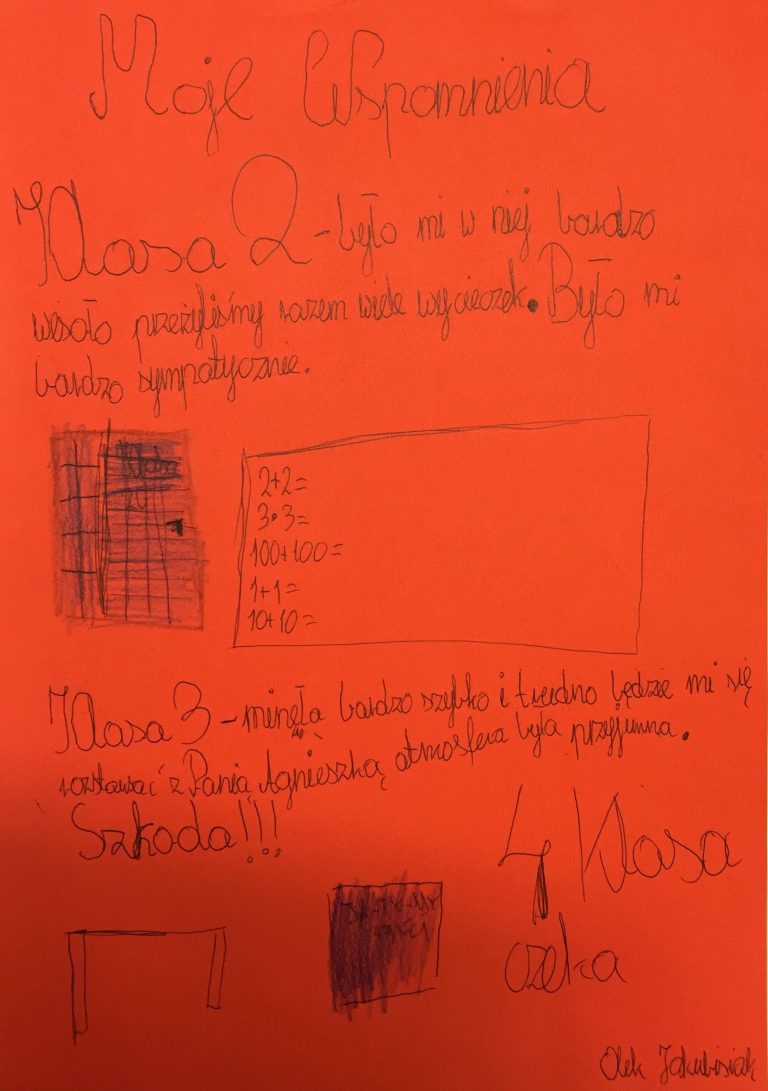 Moje Wspomnienia
Klasa 2 - było mi w niej bardzo
wesoło przeżyliśmy razem wiele wycieczek. Było mi
bardzo sympatycznie.
Klasa
2+2=
3•3=
100+100=
1+1=
10+10=
Klasa 3 - minęła bardzo szybko i trudno będzie mi się
rozstawać z Panią Agnieszką atmosfera była przyjemna.
Szkoda!!!
4 Klasa
czeka
Olek Jakubisiak